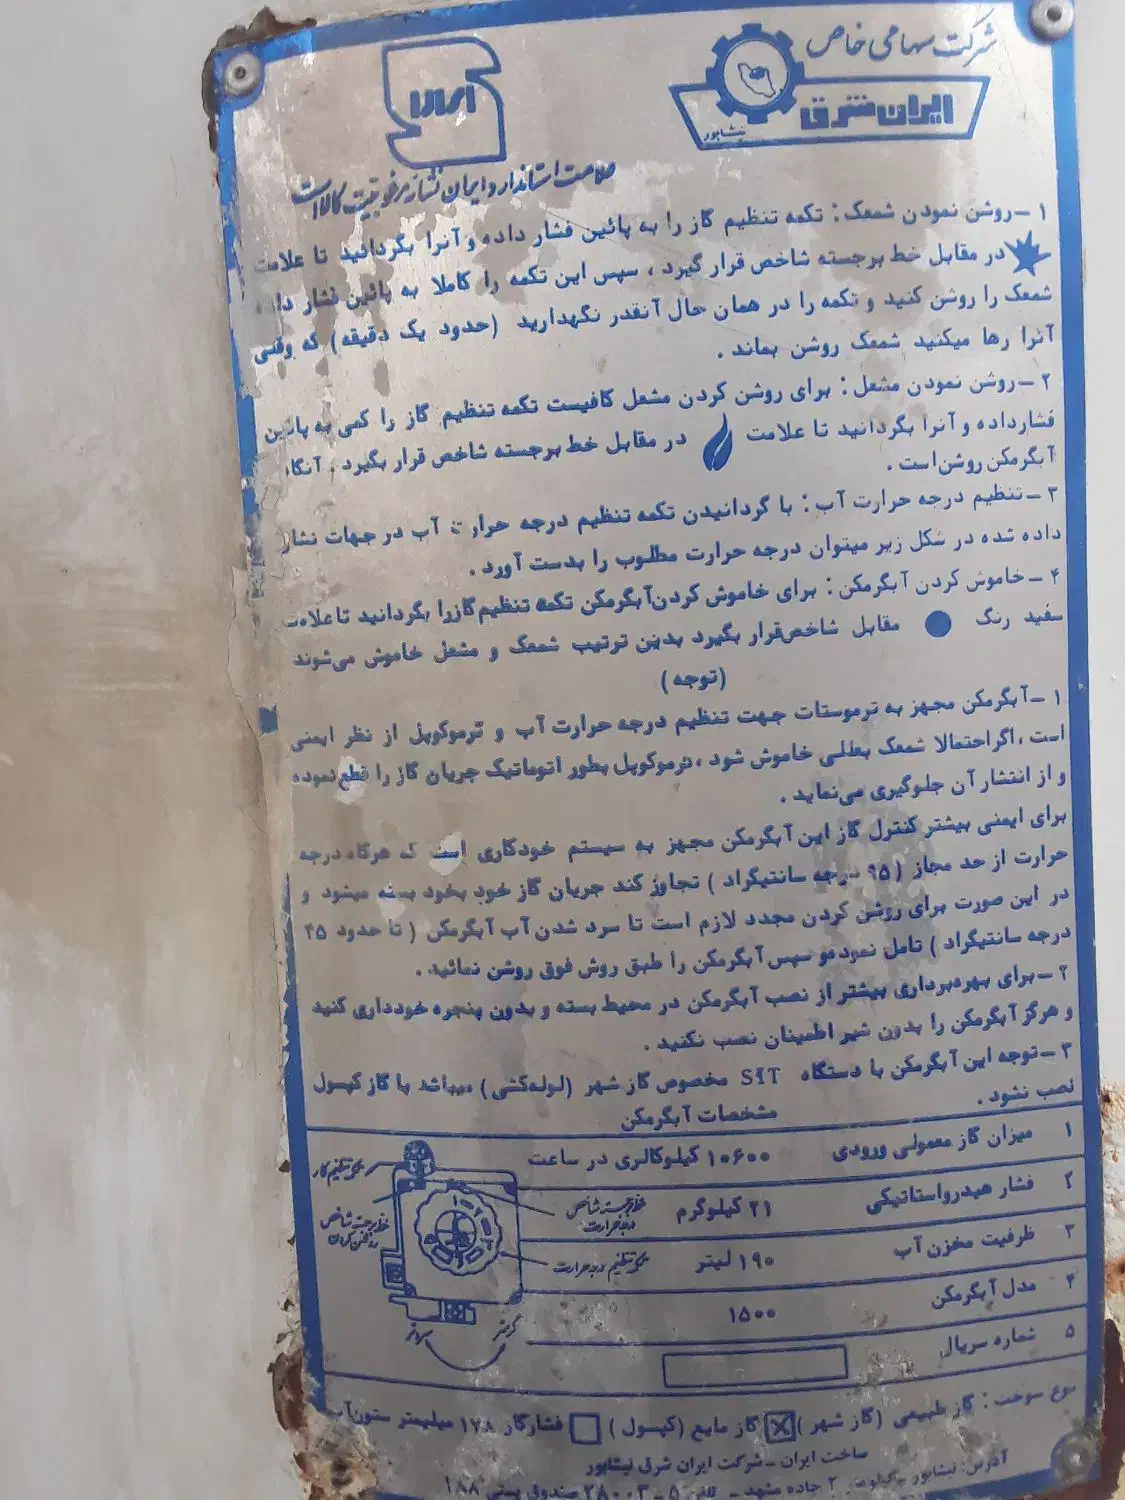 شرکت سهامی خاص
ایران شرق
نیشابور
علامت استاندارد ایران نشانه مرغوبیت کالا است
۱ - روشن نمودن شمعک : تکمه تنظیم گاز را به پائین فشار داده و آنرا بگردانید تا علامت
در مقابل خط برجسته شاخص قرار گیرد ، سپس این تکمه را کاملا به پائین فشار داده
شمعک را روشن کنید و تکمه را در همان حال آنقدر نگهدارید (حدود یک دقیقه) که وقتی
آنرا رها میکنید شمعک روشن بماند .
۲ - روشن نمودن مشعل : برای روشن کردن مشعل کافیست تکمه تنظیم گاز را کمی به پائین
فشارداده و آنرا بگردانید تا علامت در مقابل خط برجسته شاخص قرار بگیرد ، آنکاه
آبگرمکن روشن است .
۳ - تنظیم درجه حرارت آب : با گردانیدن تکمه تنظیم درجه حرارت آب در جهات نشان
داده شده در شکل زیر میتوان درجه حرارت مطلوب را بدست آورد .
۴ - خاموش کردن آبگرمکن : برای خاموش کردن آبگرمکن تکمه تنظیم گاز را بگردانید تا علامت
سفید رنگ مقابل شاخص قرار بگیرد بدین ترتیب شمعک و مشعل خاموش می‌شوند
(توجه)
۱ - آبگرمکن مجهز به ترموستات جهت تنظیم درجه حرارت آب و ترموکوپل از نظر ایمنی
است ، اگر احتمالا شمعک بعللی خاموش شود ، ترموکوپل بطور اتوماتیک جریان گاز را قطع نموده
و از انتشار آن جلوگیری می‌نماید .
برای ایمنی بیشتر کنترل گاز این آبگرمکن مجهز به سیستم خودکاری است که هرگاه درجه
حرارت از حد مجاز (۹۵ درجه سانتیگراد) تجاوز کند جریان گاز خود بخود بسته میشود و
در این صورت برای روشن کردن مجدد لازم است تا سرد شدن آب آبگرمکن (تا حدود ۴۵
درجه سانتیگراد) تامل نموده و سپس آبگرمکن را طبق روش فوق روشن نمائید .
۲ - برای بهره‌برداری بیشتر از نصب آبگرمکن در محیط بسته و بدون پنجره خودداری کنید
و هرگز آبگرمکن را بدون شیر اطمینان نصب نکنید .
۳ - توجه این آبگرمکن با دستگاه SIT مخصوص گاز شهر (لوله‌کشی) میباشد با گاز کپسول
نصب نشود .
مشخصات آبگرمکن
۱ میزان گاز معمولی ورودی ۱۰۶۰۰ کیلوکالری در ساعت
۲ فشار هیدرواستاتیکی ۲۱ کیلوگرم
۳ ظرفیت مخزن آب ۱۹۰ لیتر
۴ مدل آبگرمکن ۱۵۰۰
۵ شماره سریال
خط برجسته شاخص
درجه حرارت
خط برجسته شاخص
روشن کردن
گرمتر
سردتر
نوع سوخت : گاز طبیعی (گاز شهر) گاز مایع (کپسول) فشار گاز ۱۷۸ میلیمتر ستون آب
ساخت ایران - شرکت ایران شرق نیشابور
آدرس: نیشابور - کیلومتر ۲ جاده مشهد - صندوق پستی ۱۸۸